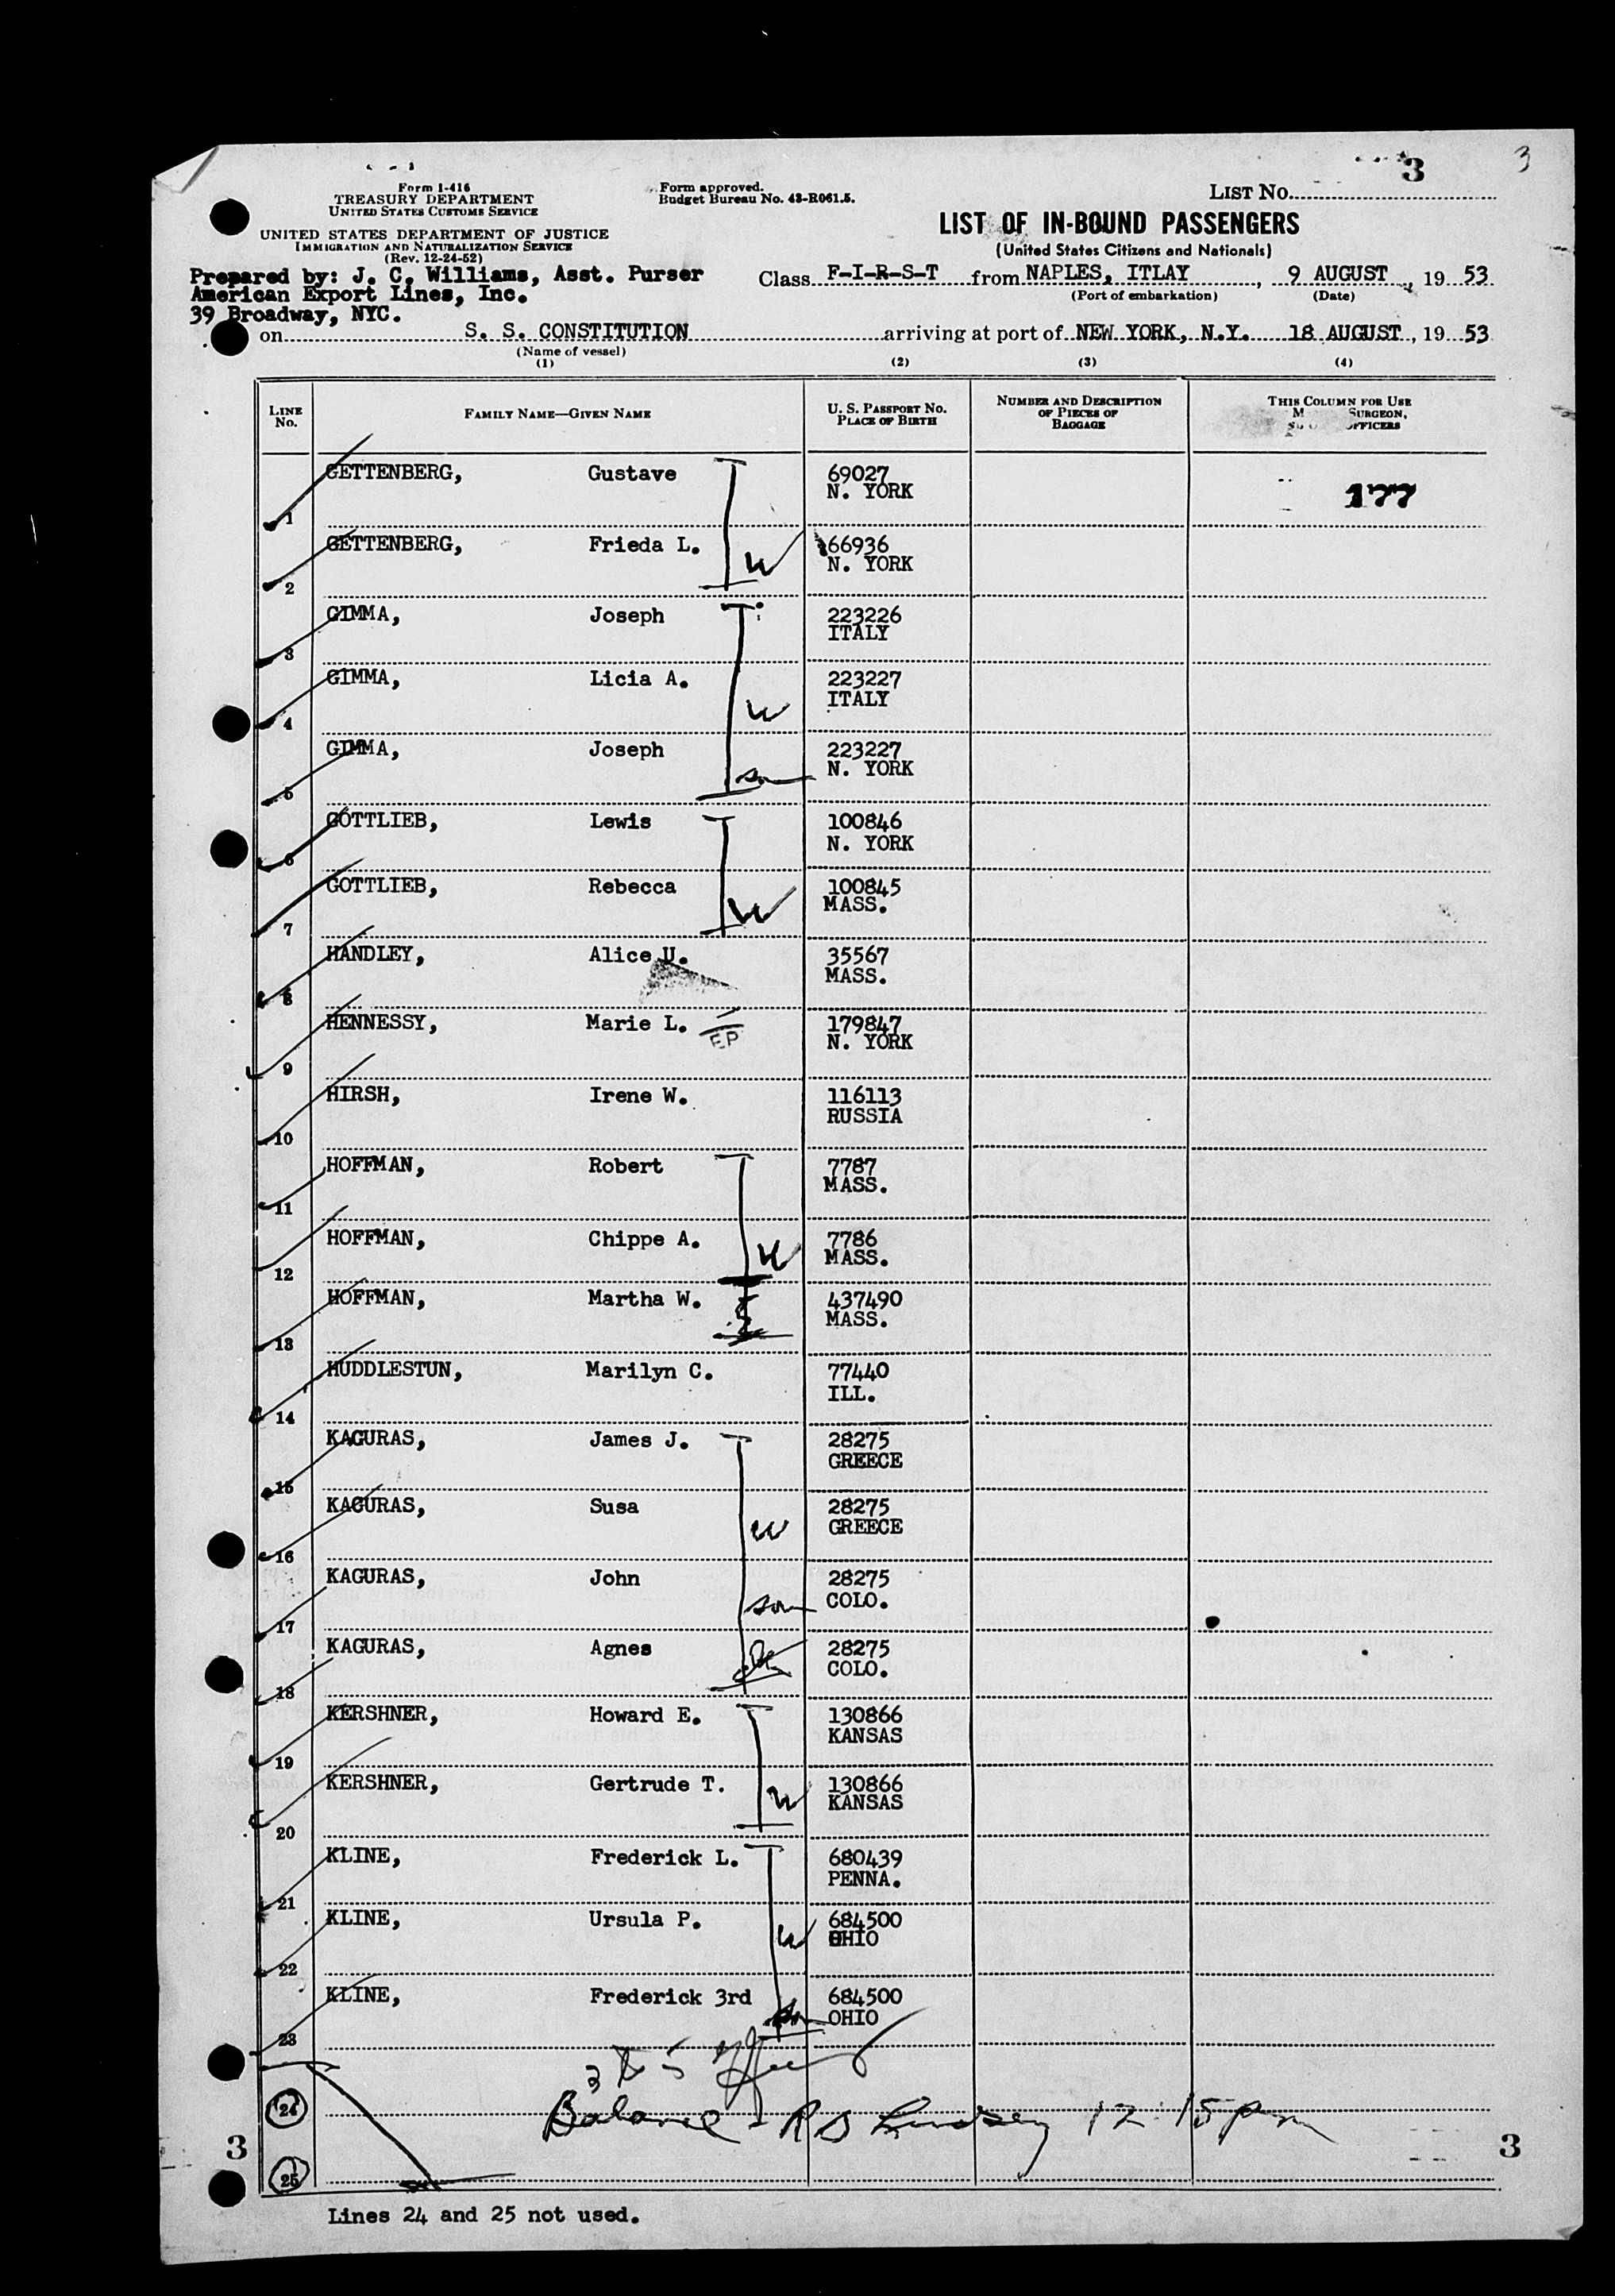 3
3
Form I-416
TREASURY DEPARTMENT
UNITED STATES CUSTOMS SERVICE
UNITED STATES DEPARTMENT OF JUSTICE
IMMIGRATION AND NATURALIZATION SERVICE
(Rev. 12-24-52)
Form approved.
Budget Bureau No. 43-R061.5.
LIST NO.
LIST OF IN-BOUND PASSENGERS
(United States Citizens and Nationals)
Prepared by: J. C. Williams, Asst. Purser
American Export Lines, Inc.
39 Broadway, NYC.
Class F-I-R-S-T from NAPLES, ITLAY, 9 AUGUST, 19 53
(Port of embarkation) (Date)
on S. S. CONSTITUTION arriving at port of NEW YORK, N.Y. 18 AUGUST, 19 53
(Name of vessel)
(1) (2) (3) (4)
LINE No. FAMILY NAME—GIVEN NAME U. S. PASSPORT NO. PLACE OF BIRTH NUMBER AND DESCRIPTION OF PIECES OF BAGGAGE THIS COLUMN FOR USE SURGEON, OFFICERS
177
1 GETTENBERG, Gustave 69027
N. YORK
2 GETTENBERG, Frieda L. W 66936
N. YORK
3 GIMMA, Joseph 223226
ITALY
4 GIMMA, Licia A. W 223227
ITALY
5 GIMMA, Joseph son 223227
N. YORK
6 GOTTLIEB, Lewis 100846
N. YORK
7 GOTTLIEB, Rebecca W 100845
MASS.
8 HANDLEY, Alice U. 35567
MASS.
9 HENNESSY, Marie L. EP 179847
N. YORK
10 HIRSH, Irene W. 116113
RUSSIA
11 HOFFMAN, Robert 7787
MASS.
12 HOFFMAN, Chippe A. W 7786
MASS.
13 HOFFMAN, Martha W. 437490
MASS.
14 HUDDLESTUN, Marilyn C. 77440
ILL.
15 KAGURAS, James J. 28275
GREECE
16 KAGURAS, Susa W 28275
GREECE
17 KAGURAS, John son 28275
COLO.
18 KAGURAS, Agnes 28275
COLO.
19 KERSHNER, Howard E. 130866
KANSAS
20 KERSHNER, Gertrude T. W 130866
KANSAS
21 KLINE, Frederick L. 680439
PENNA.
22 KLINE, Ursula P. W 684500
OHIO
23 KLINE, Frederick 3rd son 684500
OHIO
3 & 5
24 Balance - R S Lindsey 12:15 pm
3 3
25
Lines 24 and 25 not used.